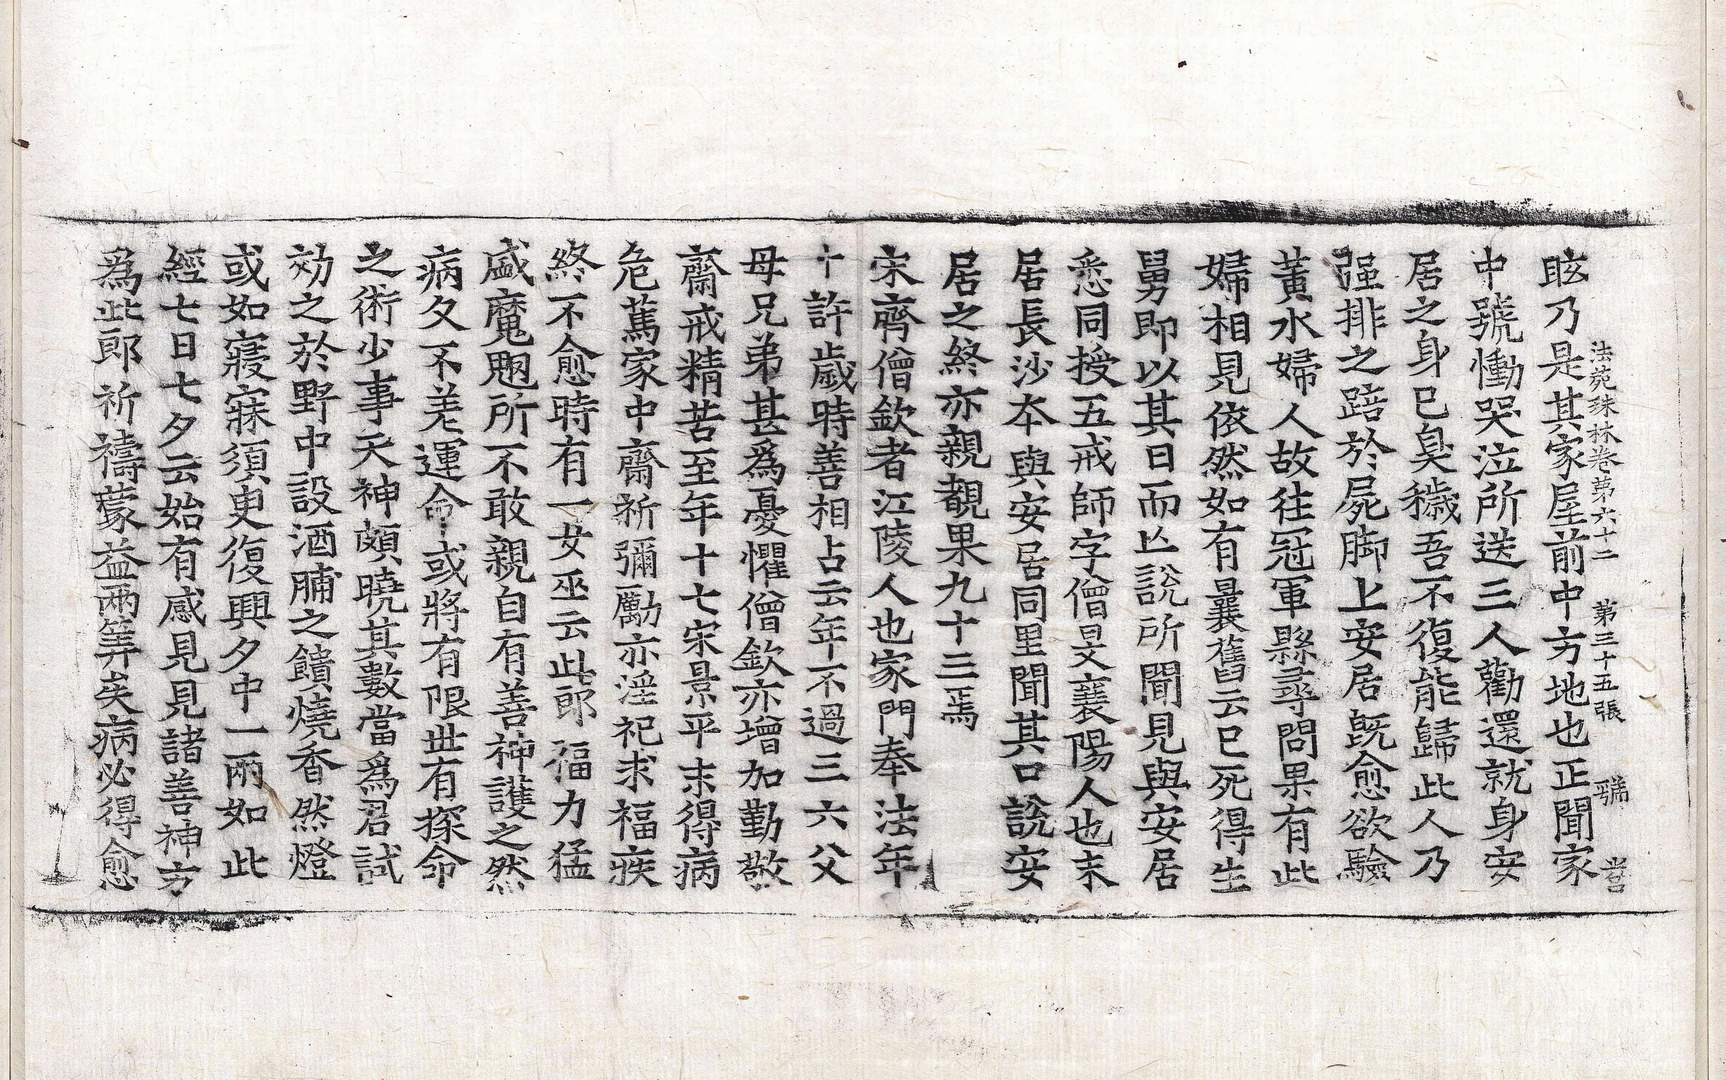 法苑珠林卷第六十二 第三十五張 號 營
眩乃是其家屋前中方地也正聞家
中號慟哭泣所送三人勸還就身安
居之身已臭穢吾不復能歸此人乃
强排之踣於屍脚上安居旣愈欲驗
黃水婦人故往冠軍縣尋問果有此
婦相見依然如有曩舊云已死得生
舅卽以其日而亡說所聞見與安居
悉同授五戒師字僧旻襄陽人也末
居長沙本與安居同里聞其口說安
居之終亦親覩果九十三焉
宋齊僧欽者江陵人也家門奉法年
十許歲時善相占云年不過三六父
母兄弟甚爲憂懼僧欽亦增加勤敬
齋戒精苦至年十七宋景平末得病
危篤家中齋祈彌勵亦淫祀求福疾
終不愈時有一女巫云此郎福力猛
盛魔魍所不敢親自有善神護之然
病久不差運命或將有限世有探命
之術少事天神頗曉其數當爲君試
効之於野中設酒脯之饋燒香然燈
或如寢寐須臾復興夕中一兩如此
經七日七夕云始有感見見諸善神方
爲此郎祈禱蒙益兩筭矣病必得愈